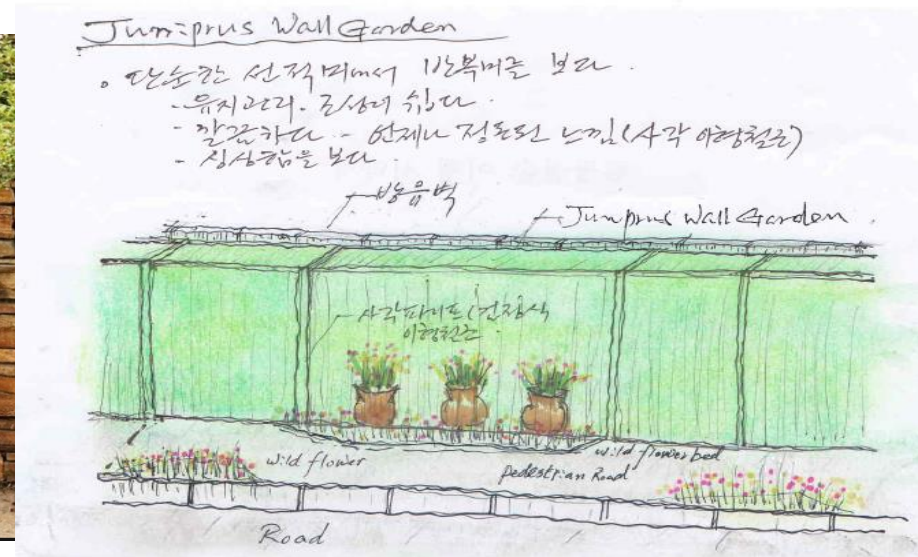 Jun=prus Wall Garden
단순한 선적미에서 반복미를 보다.
- 유지관리. 조성이 쉽다.
- 깔끔하다 - 언제나 정돈된 느낌(사각 이형철근)
- 싱싱함을 보다
방음벽
Junprus Wall Garden
사각파이프(건장식
이형철근
wild flower
wild flower bed
pedestrian Road
Road